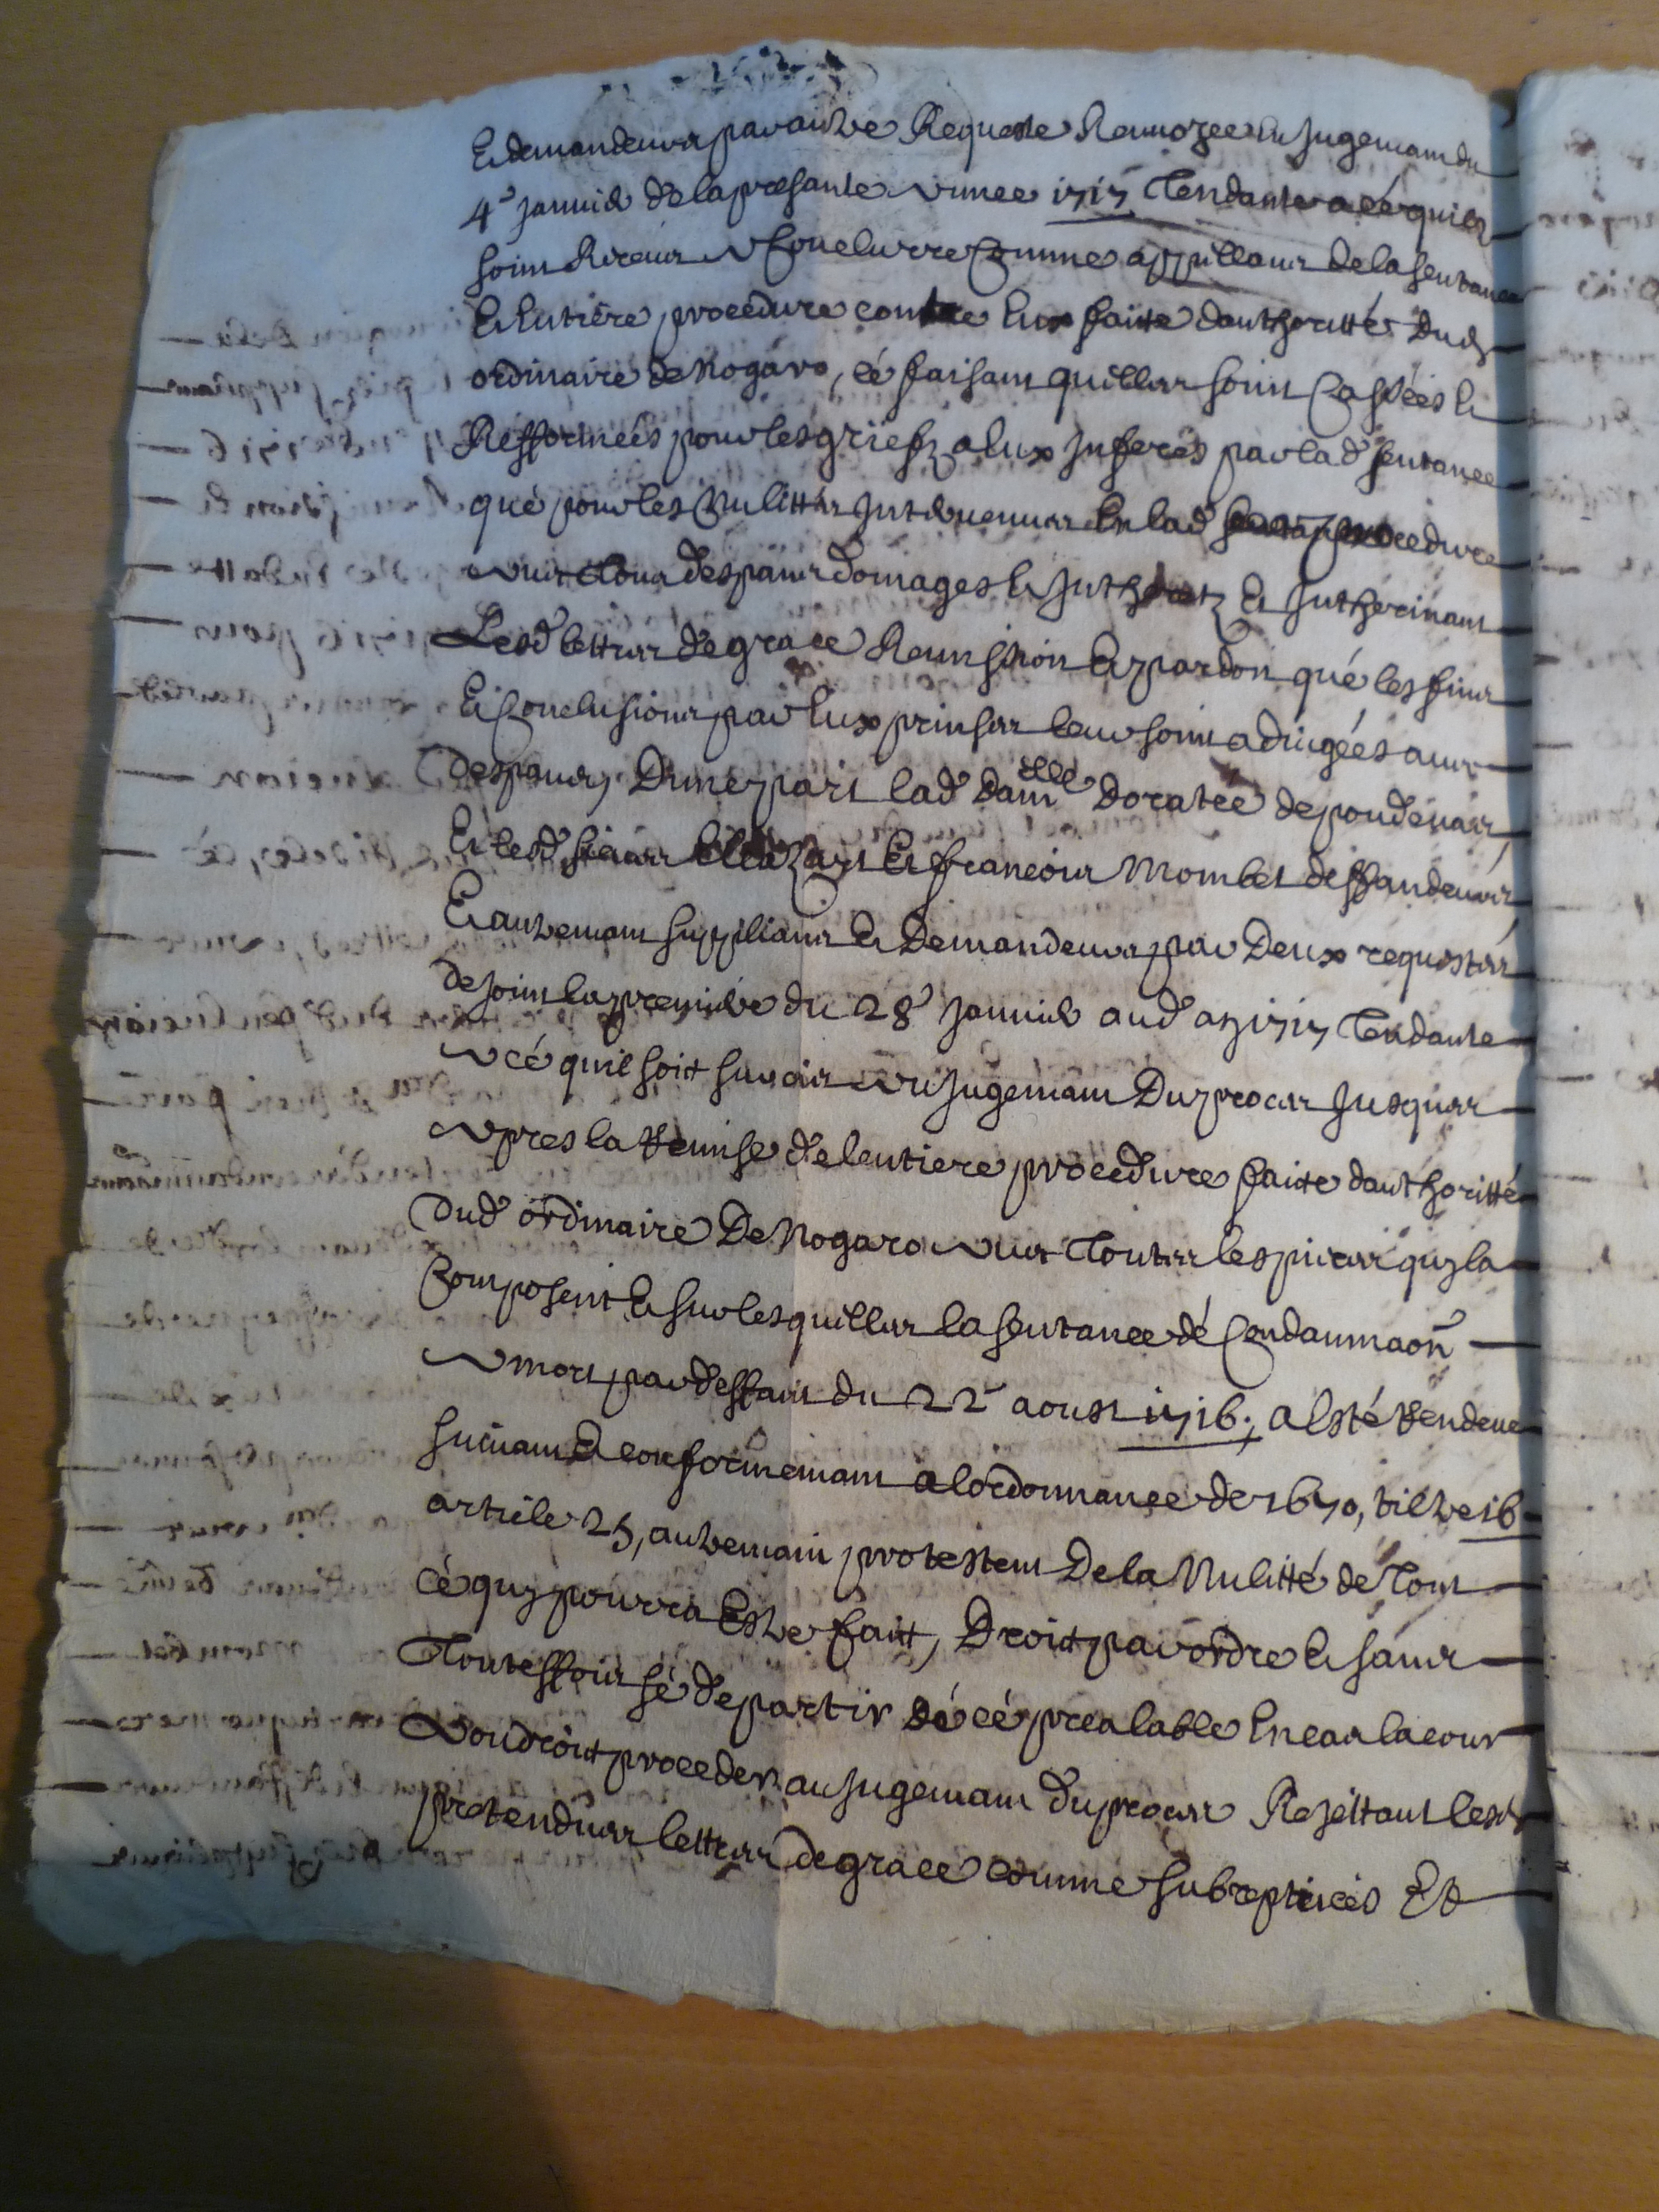 Et demandeurs par autre Requeste Renvoyee en Jugemant du
4e Janvier de la presante annee 1717 Tendante a ce quilz
soint Receus a Conclurre Comme appellans de la sentance
Et Entière procedure contre Eux faitte dauthoritté dud
ordinaire de Nogaro, cé faisant quelles soint Cassées Et
Refformeés pour les griefz a Eux Inferés par lad sentance
qué pour les Nulittés Intervenues En lad procedure
avec tous despans domages Et Inthoretz Et Intherinant
Lesd lettres de grace Remission Et pardon qué les fins
Et Conclusions par Eux prinses leur soint adiugées avec
despans, Dune part lad Damlle Doratee de poudenas,
Et lesd sieurs Et francois Mombet deffandeurs
Et autremant supplians Et Demandeurs par Deux requestes
de soint la premiere du 28e Janvier aud an 1717 Tendante
a cé quil soit sursis au Jugemant Du proces Jusques
apres la Remise de lentiere procedure faitte dauthoritté
Dud ordinaire De Nogaro avec Toutes les pieces quy la
Composent Et sur lesquelles la sentance dé Condamnaon
a mort par deffaut du 22e aoust 1716, a Esté Rendeue
suivant Et conformemant a lordonnance de 1670, tiltre 16
article 25, autremant protestent De la Nulitté de Tout
cé quy pourra Estre fait, Droit par ordre Et sans
Touteffois sé departir dé cé prealable En cas la cour
Voudroit proceder au Jugemant du proces Rejettant lesd
pretendues lettres de grace comme subreptices Et